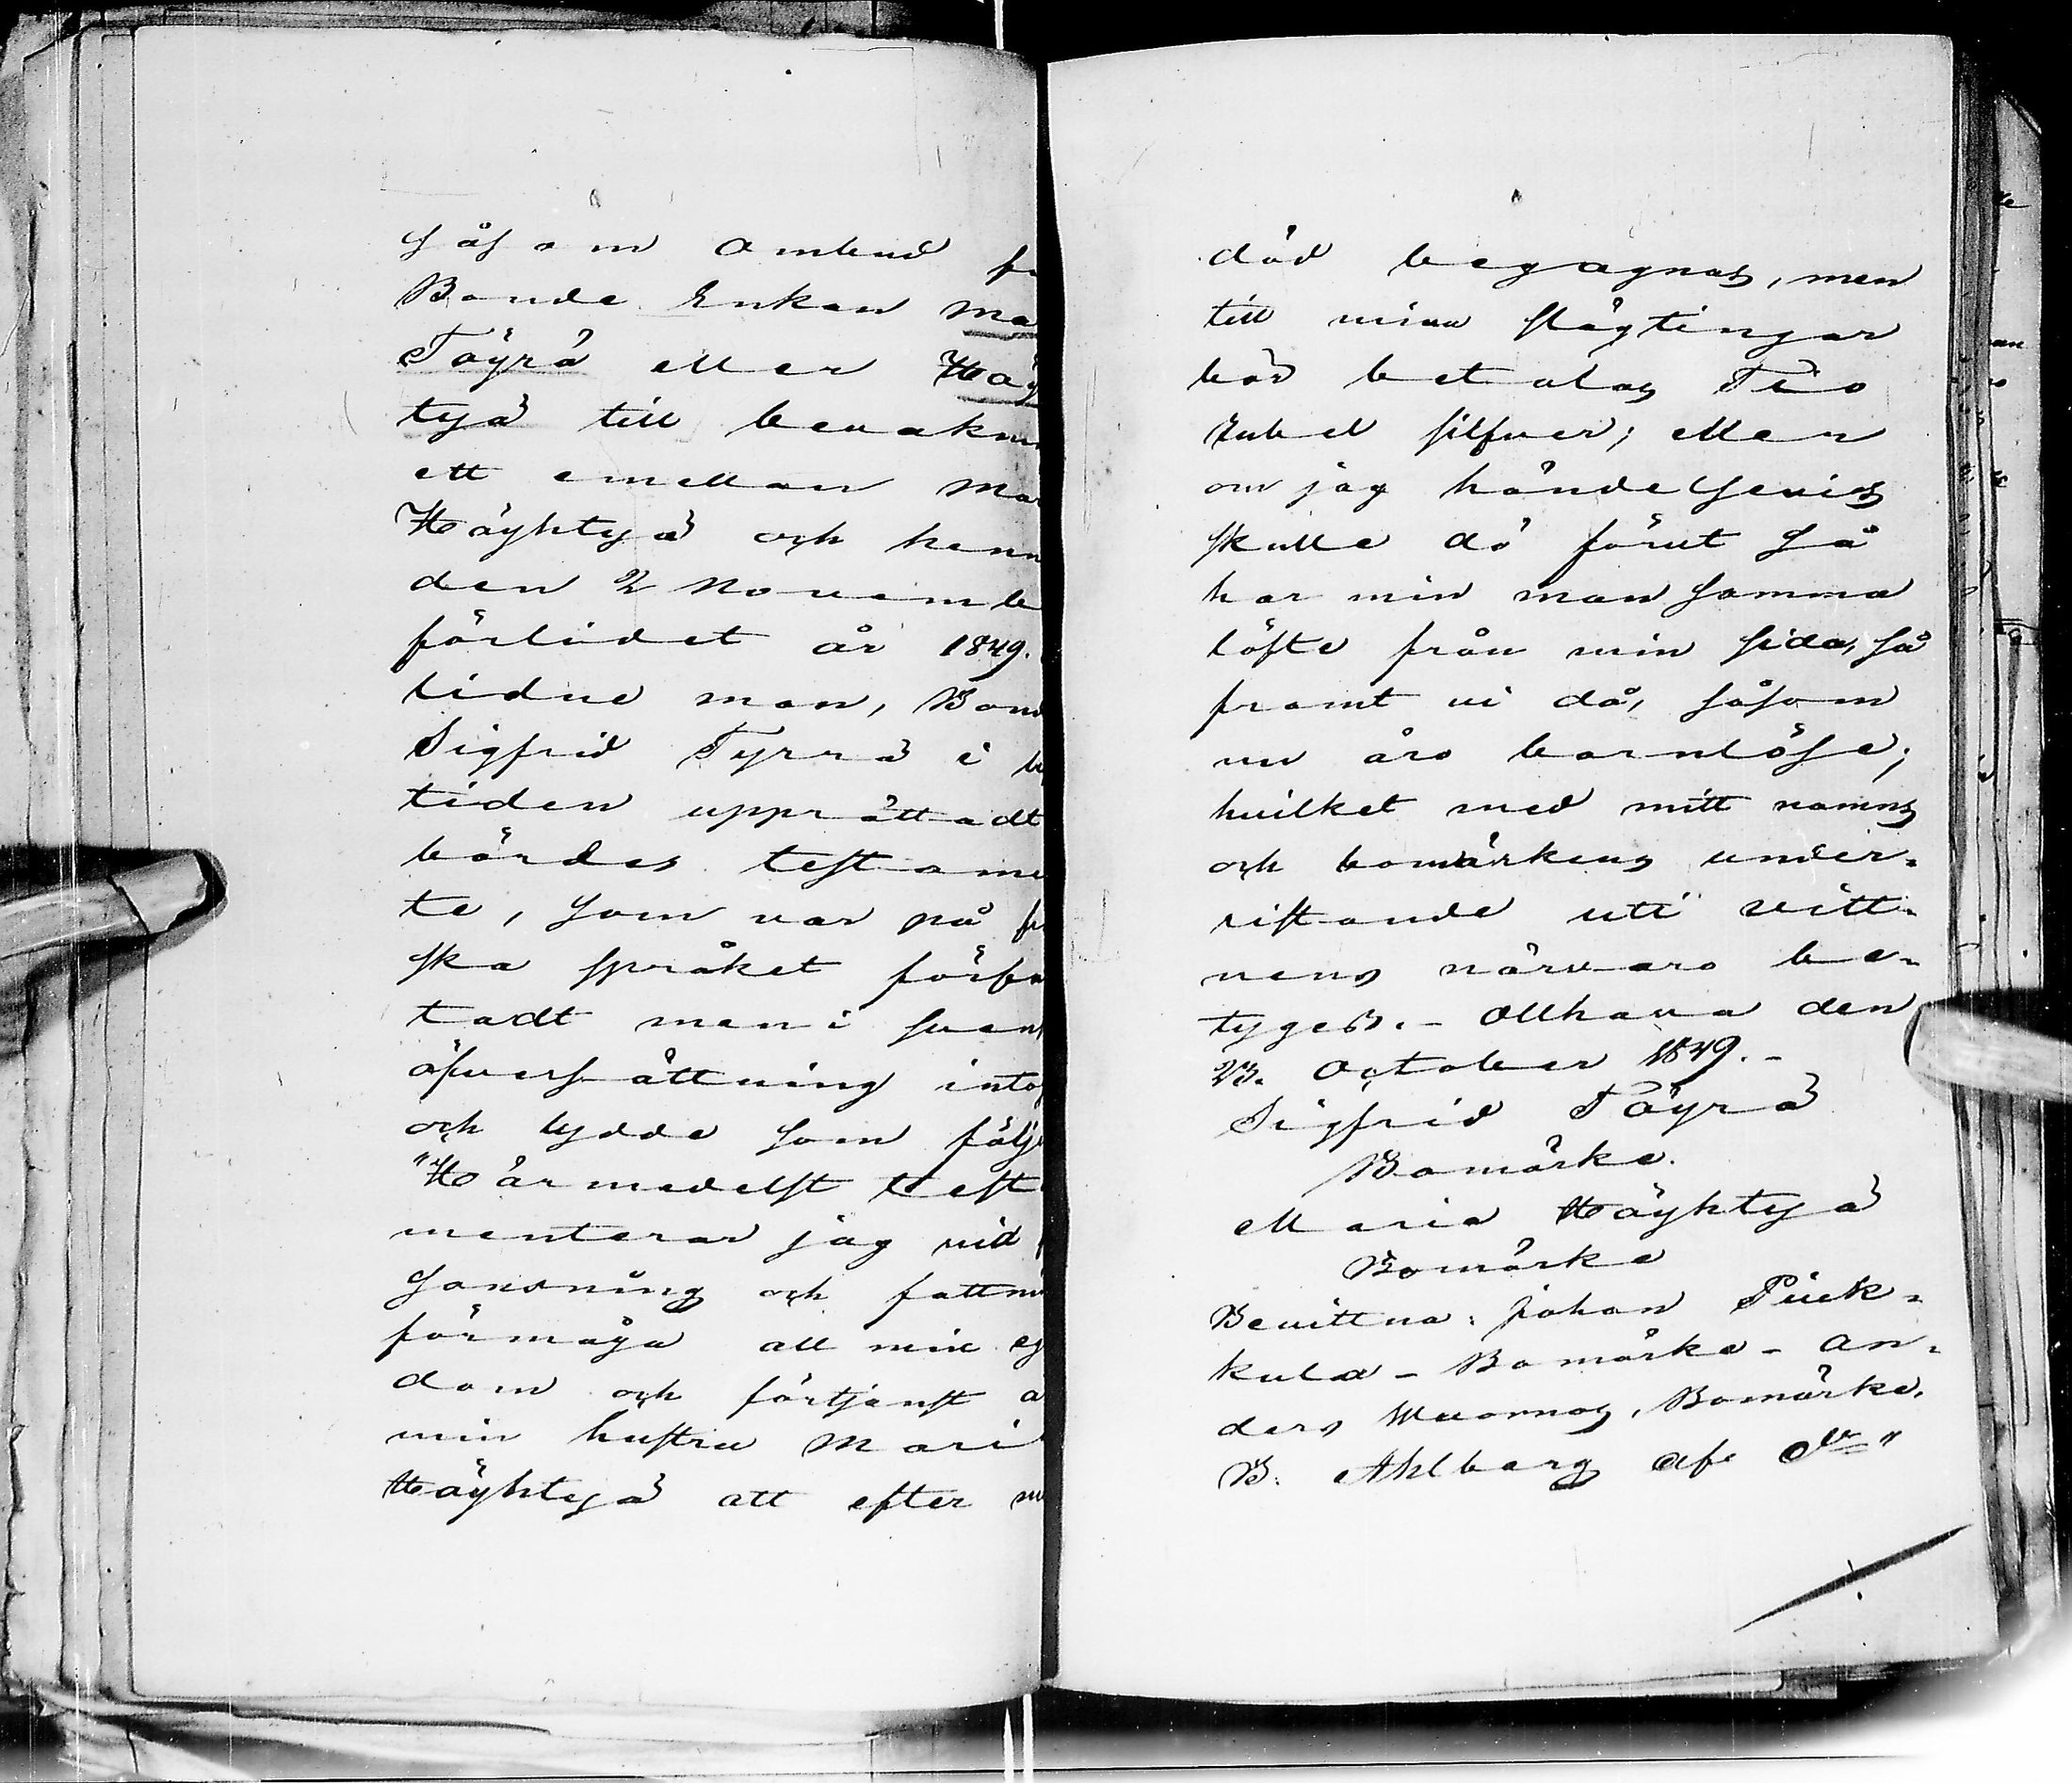 såsom ombud fö
Bonde Enkan Ma
Töyrä eller Häy
tyä till bevakni
ett emellan Mar
Häyhtyä och henn
den 2 Novemb
förlidet år 1849.
lidne man, Bon
Sigfrid Tyrrä i
tiden upprättadt
bördes testame
te, som var på fi
ska språket förfa
tadt men i sven
öfversättning intog
och lydde som följe
"Härmedelst test
menterar jag vid
sansning och fattni
förmåga all min eg
dom och förtjenst a
min hustru Mari
Häyhtyä att efter m
död begagnas, men
till mina slägtingar
bör betalas Tio
rubel silfver; eller
om jag händelsevis
skulle dö förut så
har min man samma
löfte från min sida, så
framt vi då, såsom
nu äro barnlöse;
hvilket med mitt namns
och bomärkens under-
ristande uti vitt-
nens närvaro be-
tyges. - Ollhava den
23. October 1849. -
Sigfrid Töyrä
Bomärke.
Maria Häyhtyä
Bomärke
Bevittna: Johan Piek-
kula - Bomärke - An-
ders Wuornos, Bomärke.
B. Ahlberg